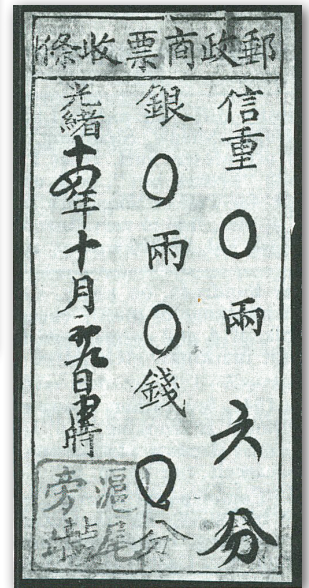 郵政商票收條
信重〇兩六分
銀〇兩〇錢〇分
光緒十四年十月初九日申時
滬尾
旁站